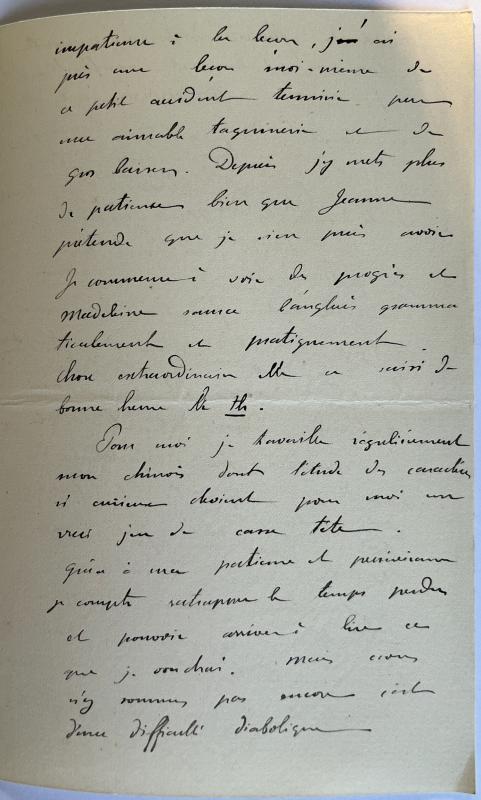 impatience à la leçon, j'ai
pris une leçon moi-même de
ce petit accident terminé par
une aimable taquinerie et de
gros baisers. Depuis j'y mets plus
de patience bien que Jeanne
prétende que je n'en puis avoir
Je commence à voir des progrès et
Madeleine saura l'anglais gramma
ticalement et pratiquement
chose extraordinaire elle a saisi de
bonne heure le th.
Pour moi je travaille régulièrement
mon chinois dont l'étude des caractères
si curieux devient pour moi un
vrai jeu de casse tête.
Grâce à ma patience et persévérance
je compte rattraper le temps perdu
et pouvoir arriver à lire ce
que je voudrai. Mais nous
n'y sommes pas encore c'est
d'une difficulté diabolique